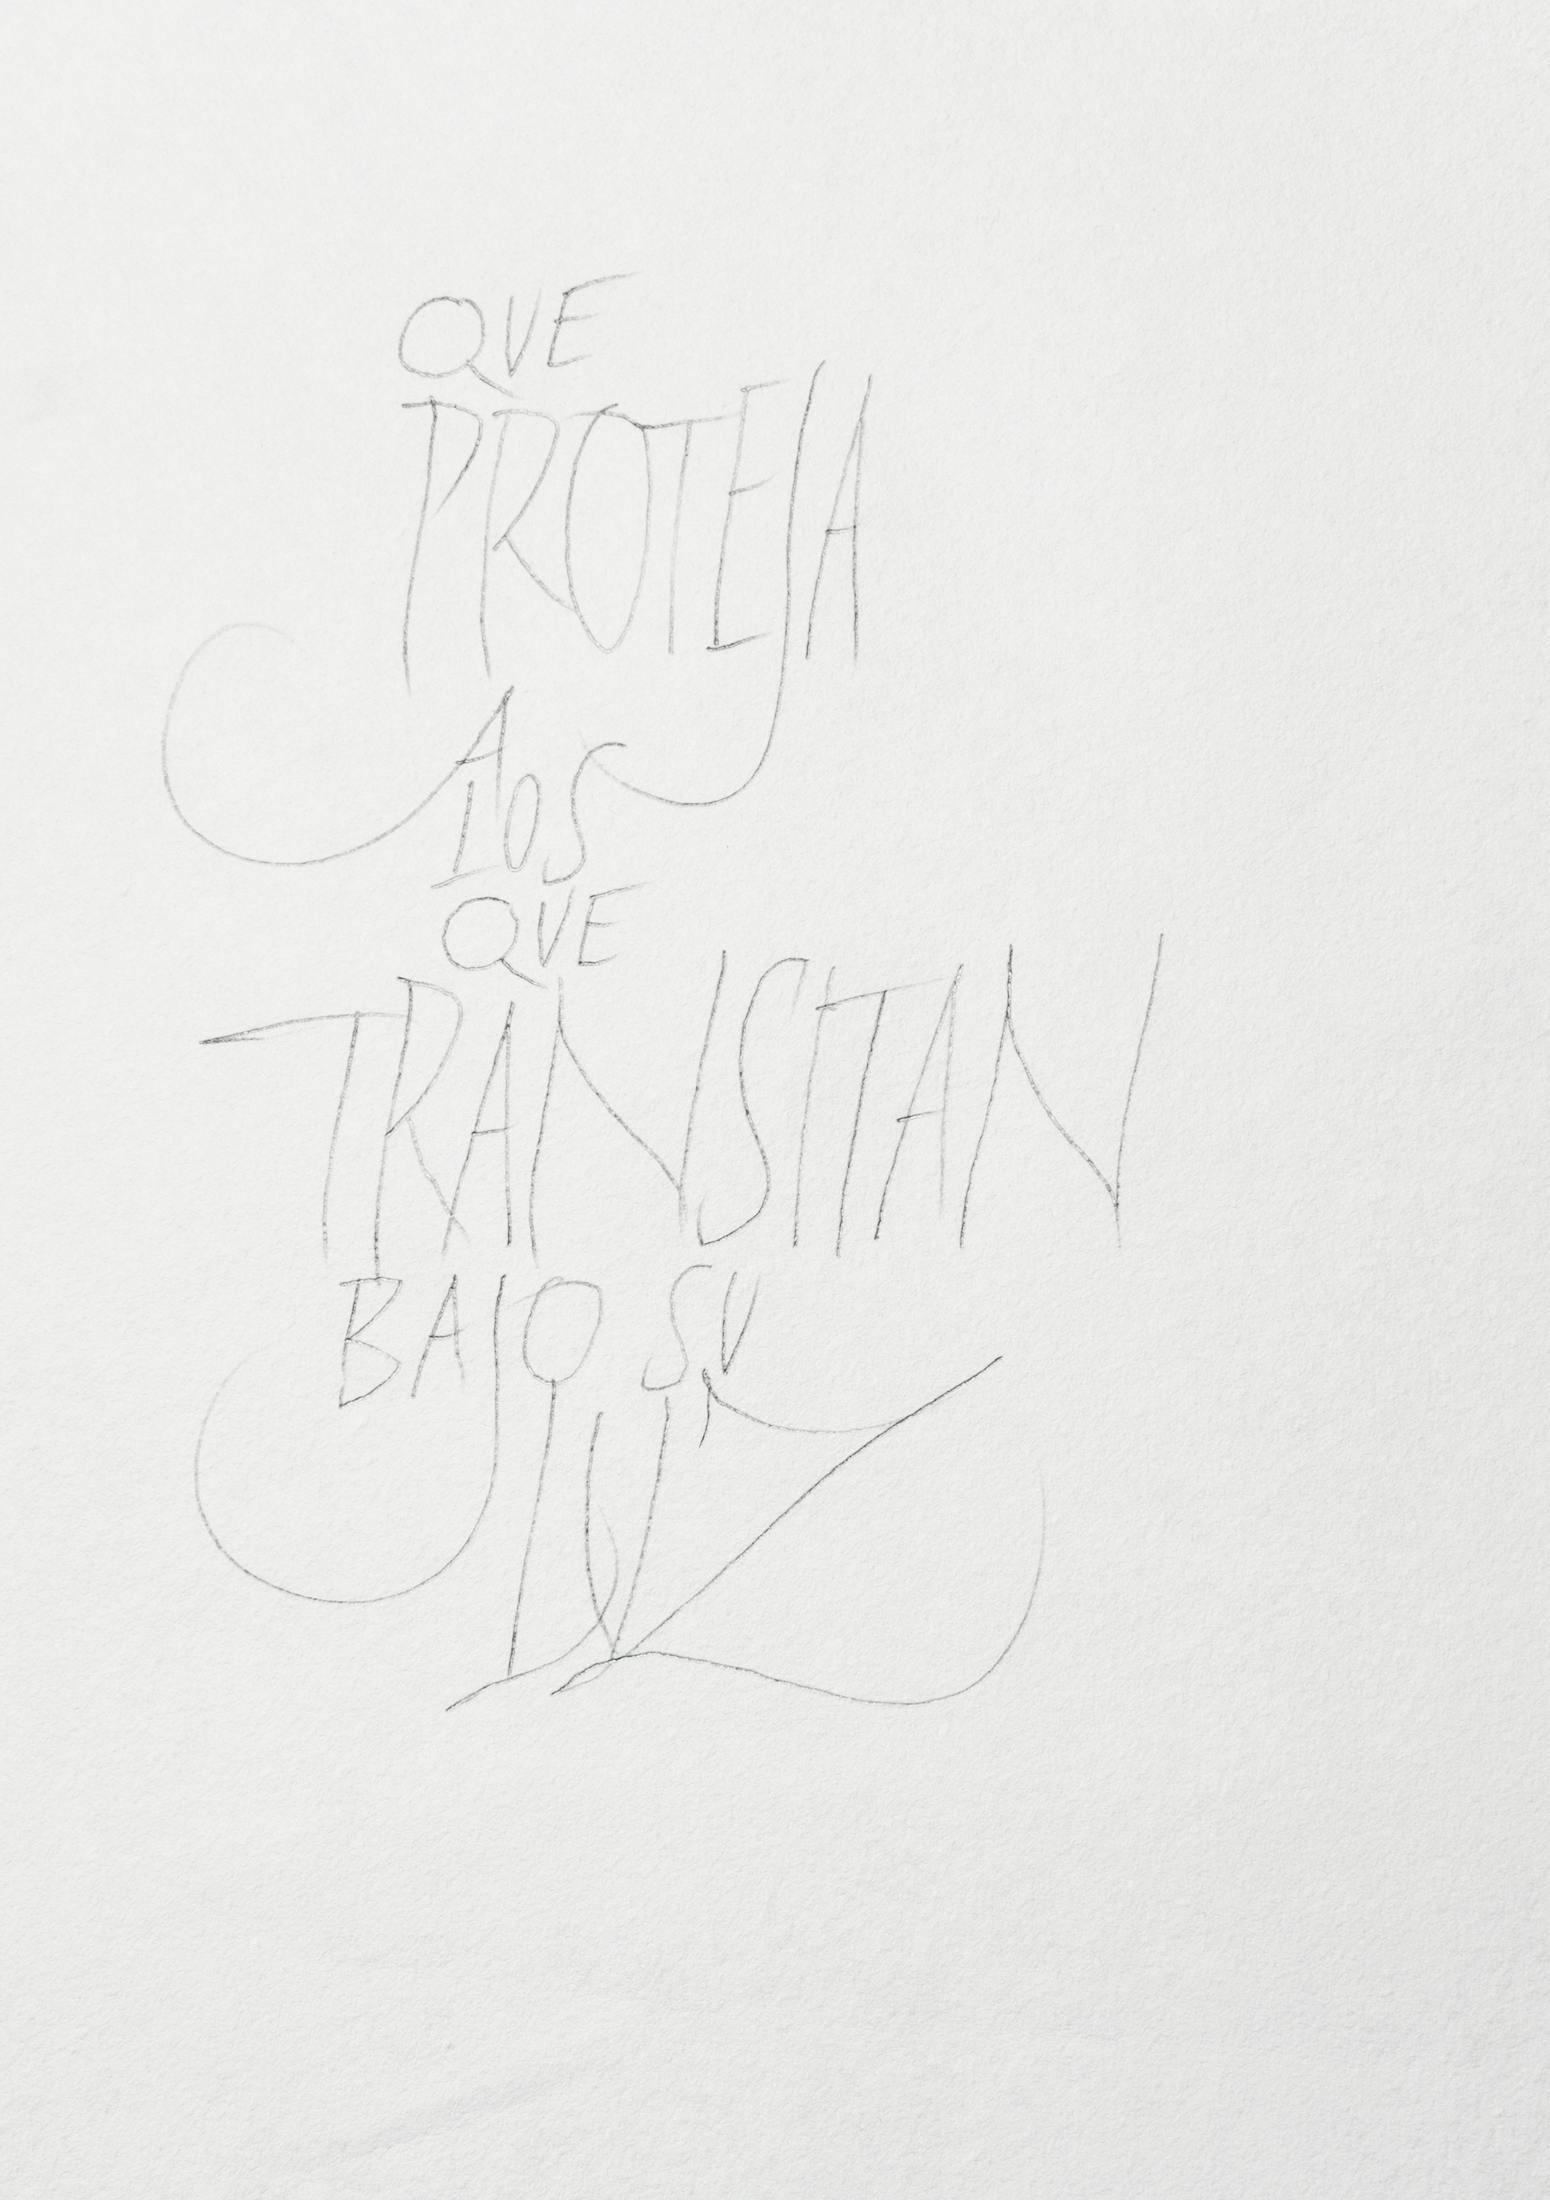 QUE
PROTEJA
A
LOS
QUE
TRANSITAN
BAJO SU
LUZ